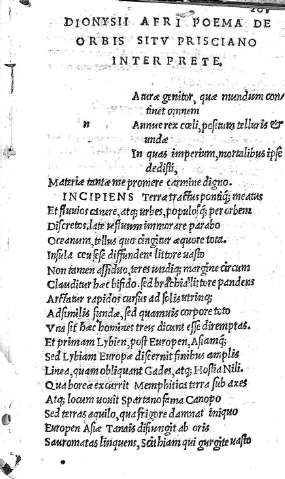 DIONYSII AFRI POEMA DE
ORBIS SITV PRISCIANO
INTERPRETE.
Aturæ genitor, quæ mundum con-
tinet omnem
n Annue rex cœli, positum telluris &
undæ
In quas imperium, mortalibus ipse
dedisti,
Materiæ tantæ me promere carmine digno.
INCIPIENS Terræ tractus pontiq; meatus
Et fluvios canere, atq; urbes, populosq; per orbem
Discretos, late memorare parabo
Oceanum, tellus quo cingitur æquore tota.
Insula ceu sese diffundens littore vasto
Non tamen assiduo, teres undiq; margine circum
Clauditur hæc bifido. sed brachia littore pandens
Arctatur rapidos cursus ad solis utrinq;
Adsimilis fundæ, sed quamuis corpore toto
Vna sit hæc homines tres dicunt esse diremptas.
Et primam Lybien, post Europen, Asiamq;
Sed Lybiam Europæ discernit finibus amplis
Linea, quam obliquant Gades, atq; Hostia Nili.
Qua boreæ excerrit Memphitica terra sub axes
Atq; locum uouit Spartano fama Canopo
Sed terras aquilo, qua frigore damnat iniquo
Europen Asiæ Tanais disiungit ab oris
Sauromatas linquens, Scithiam qui gurgite uasto